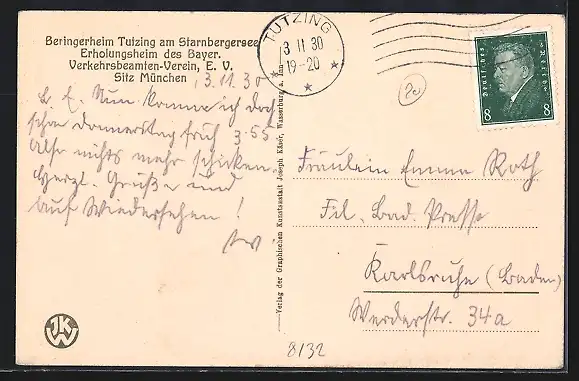 Beringerheim Tutzing am Starnbergersee
Erholungsheim des Bayer.
Verkehrsbeamten-Verein, E. V.
Sitz München
3.11.30
L. E. Nun komme ich doch
schon Donnerstag früh 3.55
Also nichts mehr schicken.
Herzl. Grüße und
auf Wiedersehen!
TUTZING
3 11 30
19-20
Deutsches Reich
8 8
Verlag der Graphischen Kunstanstalt Joseph Käser, Wasserburg a. Inn
Fräulein Emma Roth
Fil. Bad. Presse
Karlsruhe (Baden)
Werderstr. 34a
JKW
8132